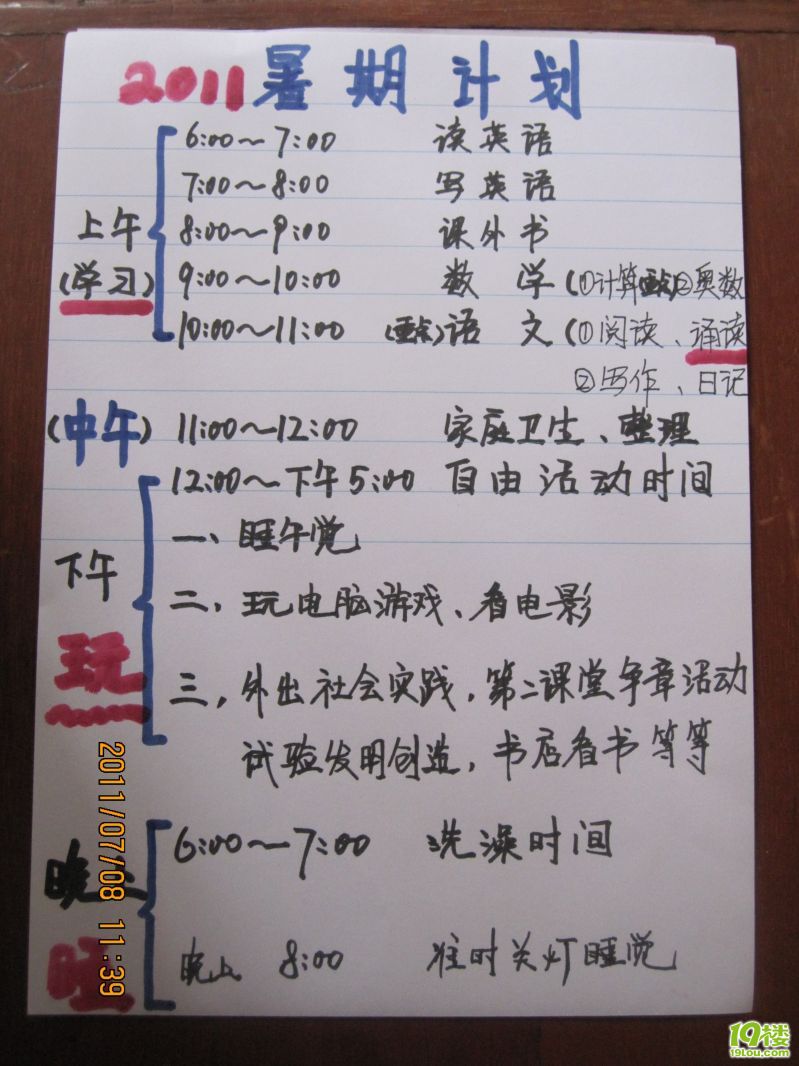 2011暑期计划
6:00~7:00 读英语
7:00~8:00 写英语
上午 8:00~9:00 课外书
(学习) 9:00~10:00 数学(①计算(重点)②奥数
10:00~11:00 (重点)语文(①阅读、诵读
②写作、日记
(中午) 11:00~12:00 家庭卫生、整理
12:00~下午5:00 自由活动时间
一、睡午觉
下午
二、玩电脑游戏、看电影
玩
三，外出社会实践，第二课堂争章活动
试验发明创造，书店看书等等
6:00~7:00 洗澡时间
晚上
晚上 8:00 准时关灯睡觉
2011/07/08 11:39
19楼
19lou.com